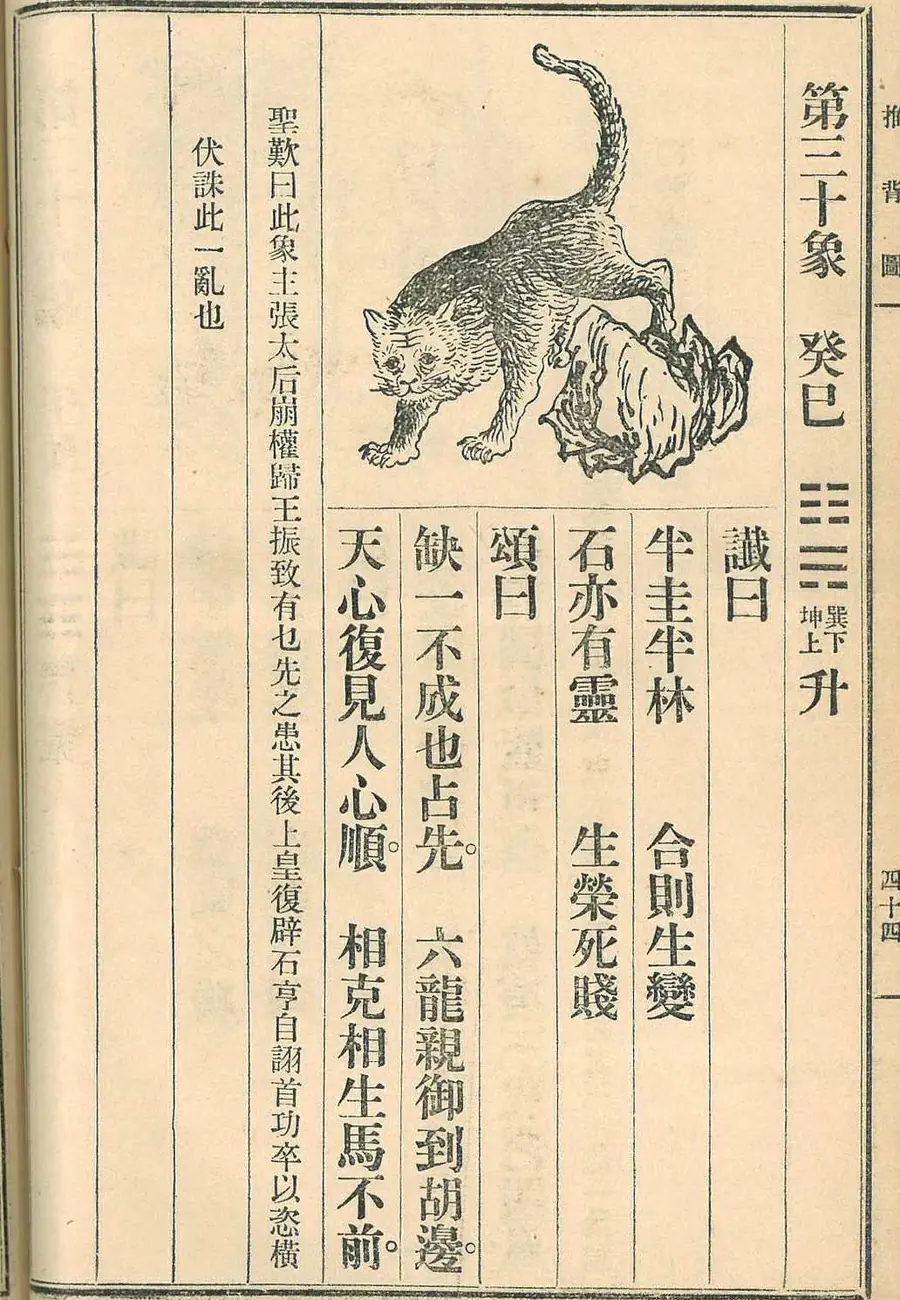 推背圖
四十四
第三十象 癸巳 巽下坤上 升
讖曰
半圭半林 合則生變
石亦有靈 生榮死賤
頌曰
缺一不成也占先。 六龍親御到胡邊。
天心復見人心順。 相克相生馬不前。
聖歎曰此象主張太后崩權歸王振致有乜先之患其後上皇復辟石亨自詡首功卒以恣橫
伏誅此一亂也